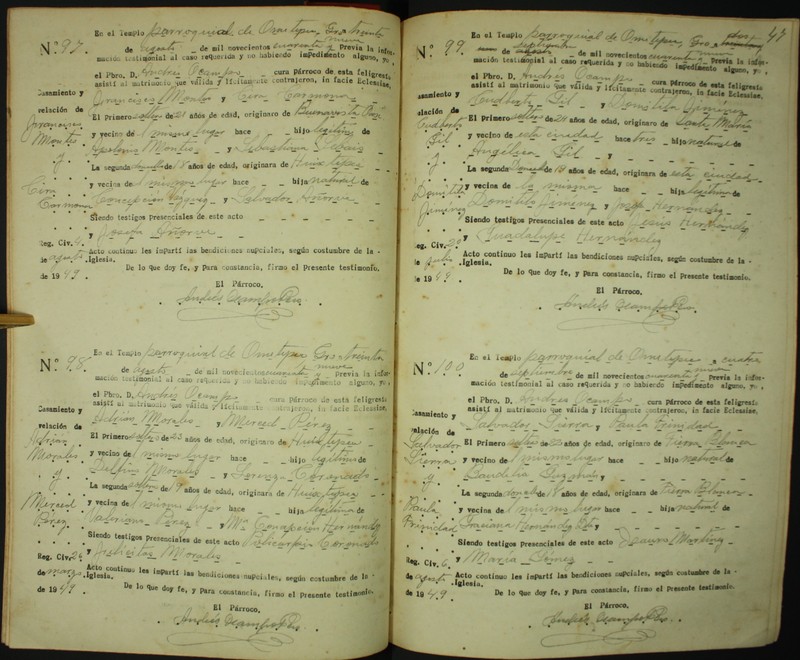 Nº 97.
En el Templo parroquial de Ometepec, Gro a treinta
de agosto _ de mil novecientos cuarenta y nueve Previa la infor-
mación testimonial al caso requerida y no habiendo impedimento alguno, yo,
el Pbro. D. Andrés Ocampo _ cura Párroco de esta feligresía
asistí al matrimonio que válida y lícitamente contrajeron, in facie Eclessiae,
Casamiento y
Francisco Montes y Cira Carmona
velación de
El Primero soltero de 21 años de edad, originario de Buenavista
Francisco
Montes
y vecino de l mismo lugar hace _ _ hijo legítimo de
Apolonio Montes _ y
y
La segunda doncella de 18 años de edad, originara de Huixtepec
Cira
Carmona
y vecina de l mismo lugar hace _ _ hija natural de
Concepción y Salvador
Siendo testigos presenciales de este acto
y Josefa
Reg. Civ.
de agosto
de 1949.
Acto continuo les impartí las bendiciones nupciales, según costumbre de la -
.Iglesia.
De lo que doy fe, y para constancia, firmo el Presente testimonio.
El Párroco,
Andrés Ocampo Pbro.
Nº 98.
En el Templo parroquial de Ometepec Gro a treinta
de agosto _ de mil novecientos cuarenta y nueve Previa la infor-
mación testimonial al caso requerida y no habiendo impedimento alguno, yo,
el Pbro. D. Andrés Ocampo cura Párroco de esta feligresía
asistí al matrimonio que válida y lícitamente contrajeron, in facie Eclessiae,
Casamiento y
Adrián Morales y Merced Pérez
velación de
El Primero soltero de 23 años de edad, originaro de Huixtepec
Adrián
Morales
y vecino de l mismo lugar hace _ _ hijo legítimo de
Delfino Morales _ y Lorenza
y
La segunda soltera de 19 años de edad, originara de Huixtepec
Merced
Pérez
y vecina de l mismo lugar hace _ _ hija legítima de
Valeriano Pérez y Ma Concepción Hernández
Siendo testigos presenciales de este acto Policarpio Coronado
y Felicitas Morales
Reg. Civ. 26
de marzo
de 1949.
Acto continuo les impartí las bendiciones nupciales, según costumbre de la -
.Iglesia.
De lo que doy fe, y Para constancia, firmo el Presente testimonio.
El Párroco,
Andrés Ocampo Pbro.
47
Nº 99.
En el Templo parroquial de Ometepec, Gro a dos
de septiembre de mil novecientos cuarenta y nueve Previa la infor-
mación testimonial al caso requerida y no habiendo impedimento alguno, yo,
el Pbro. D. Andrés Ocampo _ cura Párroco de esta feligresía
asistí al matrimonio que válida y lícitamente contrajeron, in facie Eclessiae,
Casamiento y
Gil y Domitila Jiménez
velación de
El Primero soltero de 24 años de edad, originaro de Santa María
Gil
y vecino de esta ciudad hace tres _ hijo natural de
Angelina Gil _ y
y
La segunda doncella de 18 años de edad, originara de esta ciudad
Domitila
Jiménez
y vecina de la misma hace _ _ hija legítima de
Domingo Jiménez y José Hernández
Siendo testigos Presenciales de este acto Jesús Hernández
y Guadalupe Hernández
Reg. Civ. 20
de julio
de 1949.
Acto continuo les impartí las bendiciones nupciales, según costumbre de la -
.Iglesia.
De lo que doy fe, y Para constancia, firmo el Presente testimonio.
El Párroco,
Andrés Ocampo Pbro.
Nº 100
En el Templo parroquial de Ometepec a cuatro
de septiembre _ de mil novecientos cuarenta y nueve Previa la infor-
mación testimonial al caso requerida y no habiendo impedimento alguno, yo,
el Pbro. D. Andrés Ocampo _ cura Párroco de esta feligresía
asistí al matrimonio que válida y lícitamente contrajeron, in facie Eclessiae,
Casamiento y
Salvador Sierra y Paula Trinidad
velación de
El Primero soltero de 22 años de edad, originaro de Tierra Blanca
Salvador
Sierra
y vecino de l mismo lugar hace _ _ hijo natural de
Candelia y
y
La segunda doncella de 18 años de edad, originara de Tierra Blanca
Paula
Trinidad
y vecina de l mismo lugar hace _ _ hija natural de
Graciana Hernández y
Siendo testigos presenciales de este acto Isaura Martínez
y María Gómez
Reg. Civ. 6
de agosto
de 1949.
Acto continuo les impartí las bendiciones nupciales, según costumbre de la -
.Iglesia.
De lo que doy fe, y Para constancia, firmo el Presente testimonio.
El Párroco,
Andrés Ocampo Pbro.